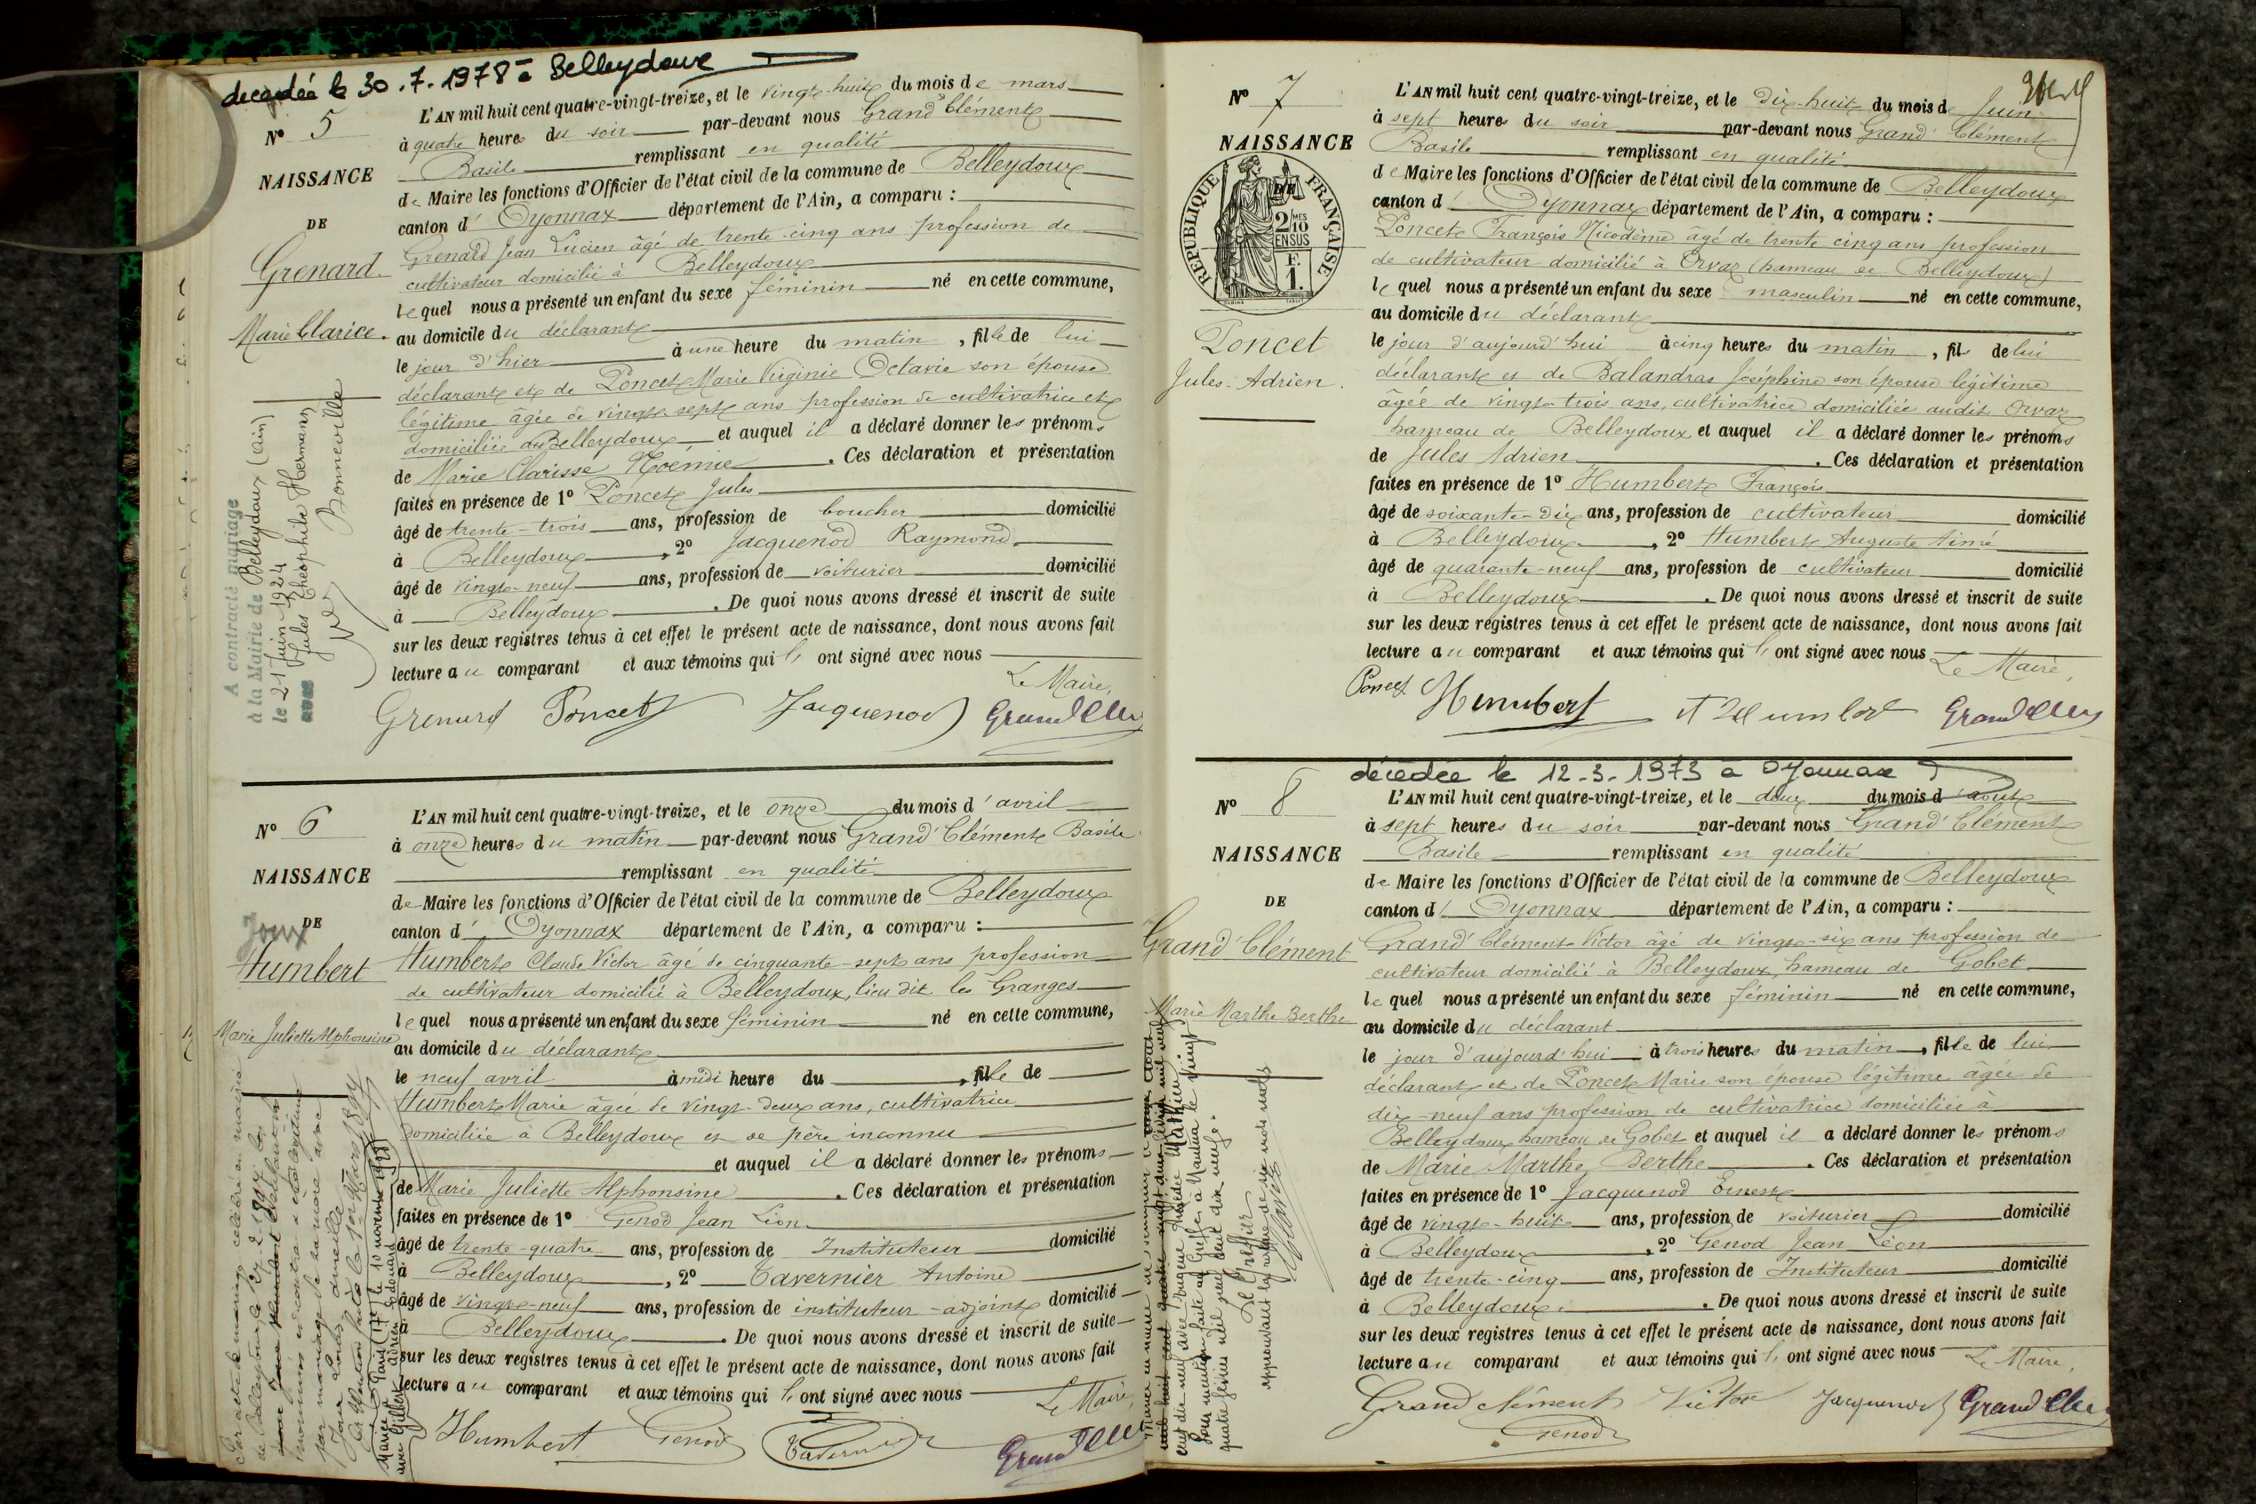 decedée le 30.7.1978 à Belleydoux
N° 5
NAISSANCE
DE
Grenard
Marie Clarice.
L'AN mil huit cent quatre-vingt-treize, et le vingt-huit du mois de mars
à quatre heures du soir par-devant nous Grand'Clément
Basile remplissant en qualité
de Maire les fonctions d'Officier de l'état civil de la commune de Belleydoux
canton d'Oyonnax département de l'Ain, a comparu :
Grenard Jean Lucien âgé de trente-cinq ans profession de
cultivateur domicilié à Belleydoux
lequel nous a présenté un enfant du sexe féminin né en cette commune,
au domicile du déclarant
le jour d'hier à une heure du matin, fille de lui
déclarant et de Poncet Marie Virginie Octavie son épouse
légitime âgée de vingt-sept ans profession de cultivatrice et
domiciliée à Belleydoux et auquel il a déclaré donner les prénoms
de Marie Clarisse Noémie. Ces déclaration et présentation
faites en présence de 1° Poncet Jules
âgé de trente-trois ans, profession de boucher domicilié
à Belleydoux, 2° Jacquenod Raymond
âgé de vingt-neuf ans, profession de voiturier domicilié
à Belleydoux. De quoi nous avons dressé et inscrit de suite
sur les deux registres tenus à cet effet le présent acte de naissance, dont nous avons fait
lecture au comparant et aux témoins qui ont signé avec nous
Le Maire,
Grenard Poncet Jacquenod Grand Clém
A contracté mariage
à la Mairie de Belleydoux (ain)
le 21 Juin 1924
avec Jules Théophile Hermann
Bonneville
N° 6
NAISSANCE
DE
Joux
Humbert
Marie Juliette Alphonsine
L'AN mil huit cent quatre-vingt-treize, et le onze du mois d'avril
à onze heures du matin par-devant nous Grand'Clément Basile
remplissant en qualité
de Maire les fonctions d'Officier de l'état civil de la commune de Belleydoux
canton d'Oyonnax département de l'Ain, a comparu :
Humbert Claude Victor âgé de cinquante-sept ans profession
de cultivateur domicilié à Belleydoux, lieu dit les Granges
lequel nous a présenté un enfant du sexe féminin né en cette commune,
au domicile du déclarant
le neuf avril à midi heure du , fille de
Humbert Marie âgée de vingt-deux ans, cultivatrice
domiciliée à Belleydoux et de père inconnu
et auquel il a déclaré donner les prénoms
de Marie Juliette Alphonsine. Ces déclaration et présentation
faites en présence de 1° Genod Jean Léon
âgé de trente-quatre ans, profession de Instituteur domicilié
à Belleydoux, 2° Tavernier Antoine
âgé de vingt-neuf ans, profession de instituteur-adjoint domicilié
à Belleydoux. De quoi nous avons dressé et inscrit de suite
sur les deux registres tenus à cet effet le présent acte de naissance, dont nous avons fait
lecture au comparant et aux témoins qui ont signé avec nous
Le Maire,
Humbert Genod Tavernier Grand Clém
par mariage de sa mère avec
Joux Louis
Marié à Paris (17e) le 10 novembre
avec Gilbert Adrien Edouard
N° 7
NAISSANCE
DE
REPUBLIQUE FRANÇAISE
2/10 MES
EN SUS
F.
1.
Poncet
Jules Adrien.
L'AN mil huit cent quatre-vingt-treize, et le dix-huit du mois de Juin
à sept heures du soir par-devant nous Grand'Clément
Basile remplissant en qualité
de Maire les fonctions d'Officier de l'état civil de la commune de Belleydoux
canton d'Oyonnax département de l'Ain, a comparu :
Poncet François Nicodème âgé de trente cinq ans profession
de cultivateur domicilié à Orvaz (hameau de Belleydoux)
lequel nous a présenté un enfant du sexe masculin né en cette commune,
au domicile du déclarant
le jour d'aujourd'hui à cinq heures du matin, fils de lui
déclarant et de Balandras Joséphine son épouse légitime
âgée de vingt-trois ans, cultivatrice domiciliée audit Orvaz
hameau de Belleydoux et auquel il a déclaré donner les prénoms
de Jules Adrien. Ces déclaration et présentation
faites en présence de 1° Humbert François
âgé de soixante-dix ans, profession de cultivateur domicilié
à Belleydoux, 2° Humbert Auguste Aimé
âgé de quarante-neuf ans, profession de cultivateur domicilié
à Belleydoux. De quoi nous avons dressé et inscrit de suite
sur les deux registres tenus à cet effet le présent acte de naissance, dont nous avons fait
lecture au comparant et aux témoins qui ont signé avec nous
Le Maire,
Poncet Humbert A Humbert Grand Clém
décédée le 12-3-1973 à Oyonnax
N° 8
NAISSANCE
DE
Grand'Clément
Marie Marthe Berthe
L'AN mil huit cent quatre-vingt-treize, et le deux du mois d'août
à sept heures du soir par-devant nous Grand'Clément
Basile remplissant en qualité
de Maire les fonctions d'Officier de l'état civil de la commune de Belleydoux
canton d'Oyonnax département de l'Ain, a comparu :
Grand'Clément Victor âgé de vingt-six ans profession de
cultivateur domicilié à Belleydoux, hameau de Gobet
lequel nous a présenté un enfant du sexe féminin né en cette commune,
au domicile du déclarant
le jour d'aujourd'hui à trois heures du matin, fille de lui
déclarant et de Poncet Marie son épouse légitime âgée de
dix-neuf ans profession de cultivatrice domiciliée à
Belleydoux hameau de Gobet et auquel il a déclaré donner les prénoms
de Marie Marthe Berthe. Ces déclaration et présentation
faites en présence de 1° Jacquenod Ernest
âgé de vingt-huit ans, profession de voiturier domicilié
à Belleydoux, 2° Genod Jean Léon
âgé de trente-cinq ans, profession de Instituteur domicilié
à Belleydoux. De quoi nous avons dressé et inscrit de suite
sur les deux registres tenus à cet effet le présent acte de naissance, dont nous avons fait
lecture au comparant et aux témoins qui ont signé avec nous
Le Maire,
Grand Clément Victor Jacquenod Grand Clém
Genod
Pour mention faite au Greffe à Nantua le vingt
quatre février mil neuf cent dix neuf.
Le Greffier
approuvant la rature de six mots nuls